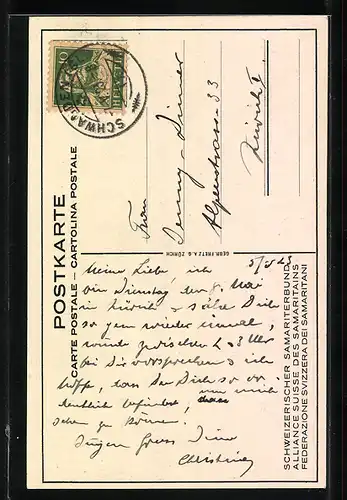 POSTKARTE
CARTE POSTALE — CARTOLINA POSTALE
SCHWANDEN
HELVETIA
10
Frau
Jenny-Dinner
Alpenstrasse 33
Zürich 2
GEBR. FRETZ A.G. ZÜRICH
5/V 23
Meine Liebe, ich
bin Dienstag den 8. Mai
in Zürich & sähe Dich
so gern wieder einmal,
würde zwischen 2-3 Uhr
bei Dir vorsprechen & ich
hoffe, dass Du Dich so or-
dentlich befindest, um mich
sehen zu können.
Innigen Gruss Deine
Christine
SCHWEIZERISCHER SAMARITERBUND
ALLIANCE SUISSE DES SAMARITAINS
FEDERAZIONE SVIZZERA DEI SAMARITANI